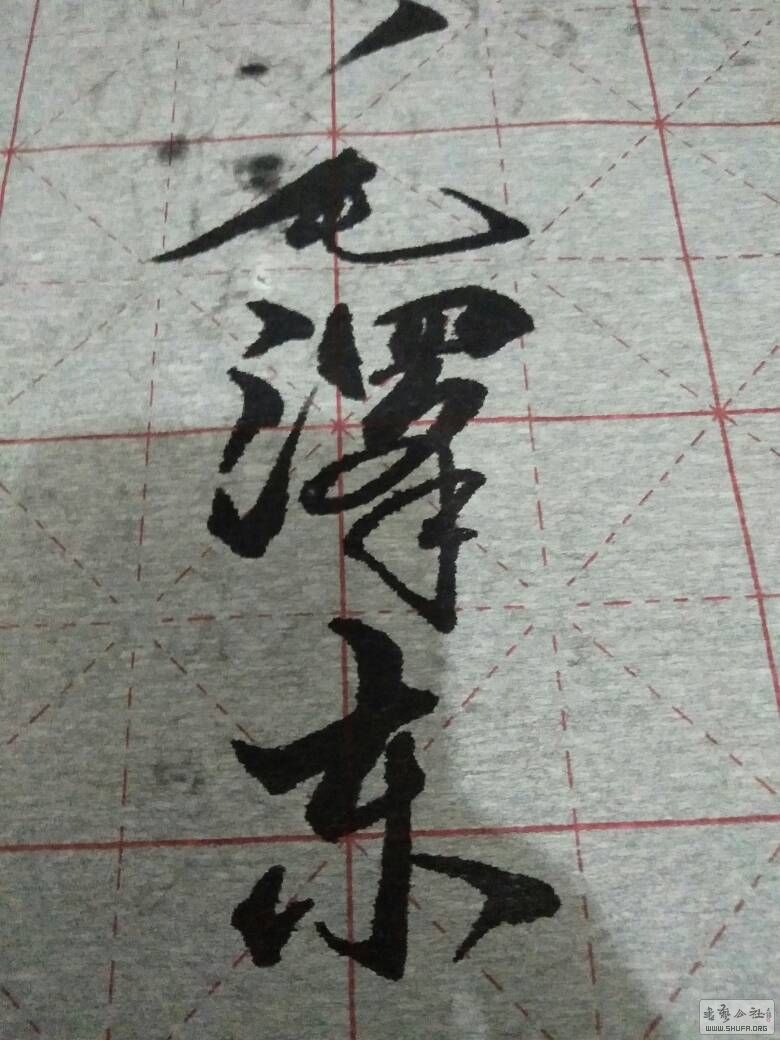 毛澤东
书艺公社
WWW.SHUFA.ORG